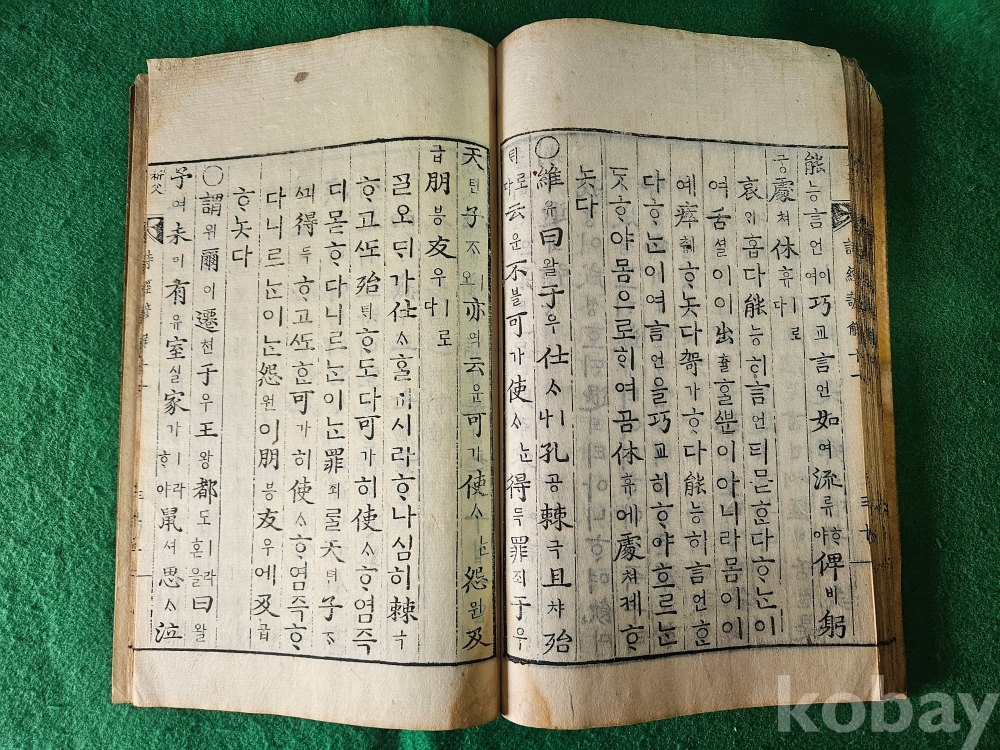 詩經諺解十一
能능言언이여巧교言언如여流류ᄒᆞ야俾비躬
궁處쳐休휴ㅣ로다
哀ᄋᆡ홉다能능히言언티몯ᄒᆞᆫ다ᄒᆞᄂᆞᆫ이
여舌셜이이出츌ᄒᆞᆯᄲᅮᆫ이아니라몸이이
예瘁췌ᄒᆞ놋다哿가ᄒᆞ다能능히言언ᄒᆞᆫ
다ᄒᆞᄂᆞᆫ이여言언을巧교히ᄒᆞ야흐르ᄂᆞᆫ
ᄃᆞᆺᄒᆞ야몸으로ᄒᆡ여곰休휴에處쳐케ᄒᆞ
놋다
○維유曰왈于우仕ᄉᆞㅣ나孔공棘극且챠殆
ᄐᆡ로다云운不블可가使ᄉᆞᄂᆞᆫ得득罪죄于우
天텬子ᄌᆞㅣ오亦역云운可가使ᄉᆞᄂᆞᆫ怨원及
급朋붕友우ㅣ로다
ᄀᆞᆯ오ᄃᆡ가仕ᄉᆞᄒᆞᆯ띠시라ᄒᆞ나심히棘극
ᄒᆞ고ᄯᅩ殆ᄐᆡᄒᆞ도다可가히使ᄉᆞᄒᆞ염즉
디몯ᄒᆞ다니르ᄂᆞᆫ이ᄂᆞᆫ罪죄ᄅᆞᆯ天텬子ᄌᆞ
ᄭᅴ得득ᄒᆞ고ᄯᅩᄒᆞᆫ可가히使ᄉᆞᄒᆞ염즉ᄒᆞ
다니르ᄂᆞᆫ이ᄂᆞᆫ怨원이朋붕友우에及급
ᄒᆞ놋다
○謂위爾이遷쳔于우王왕都도ㅣ라혼을曰왈
予여未미有유室실家가ㅣ라ᄒᆞ야鼠셔思ᄉᆞ泣
祈父
詩經諺解十一
kobay